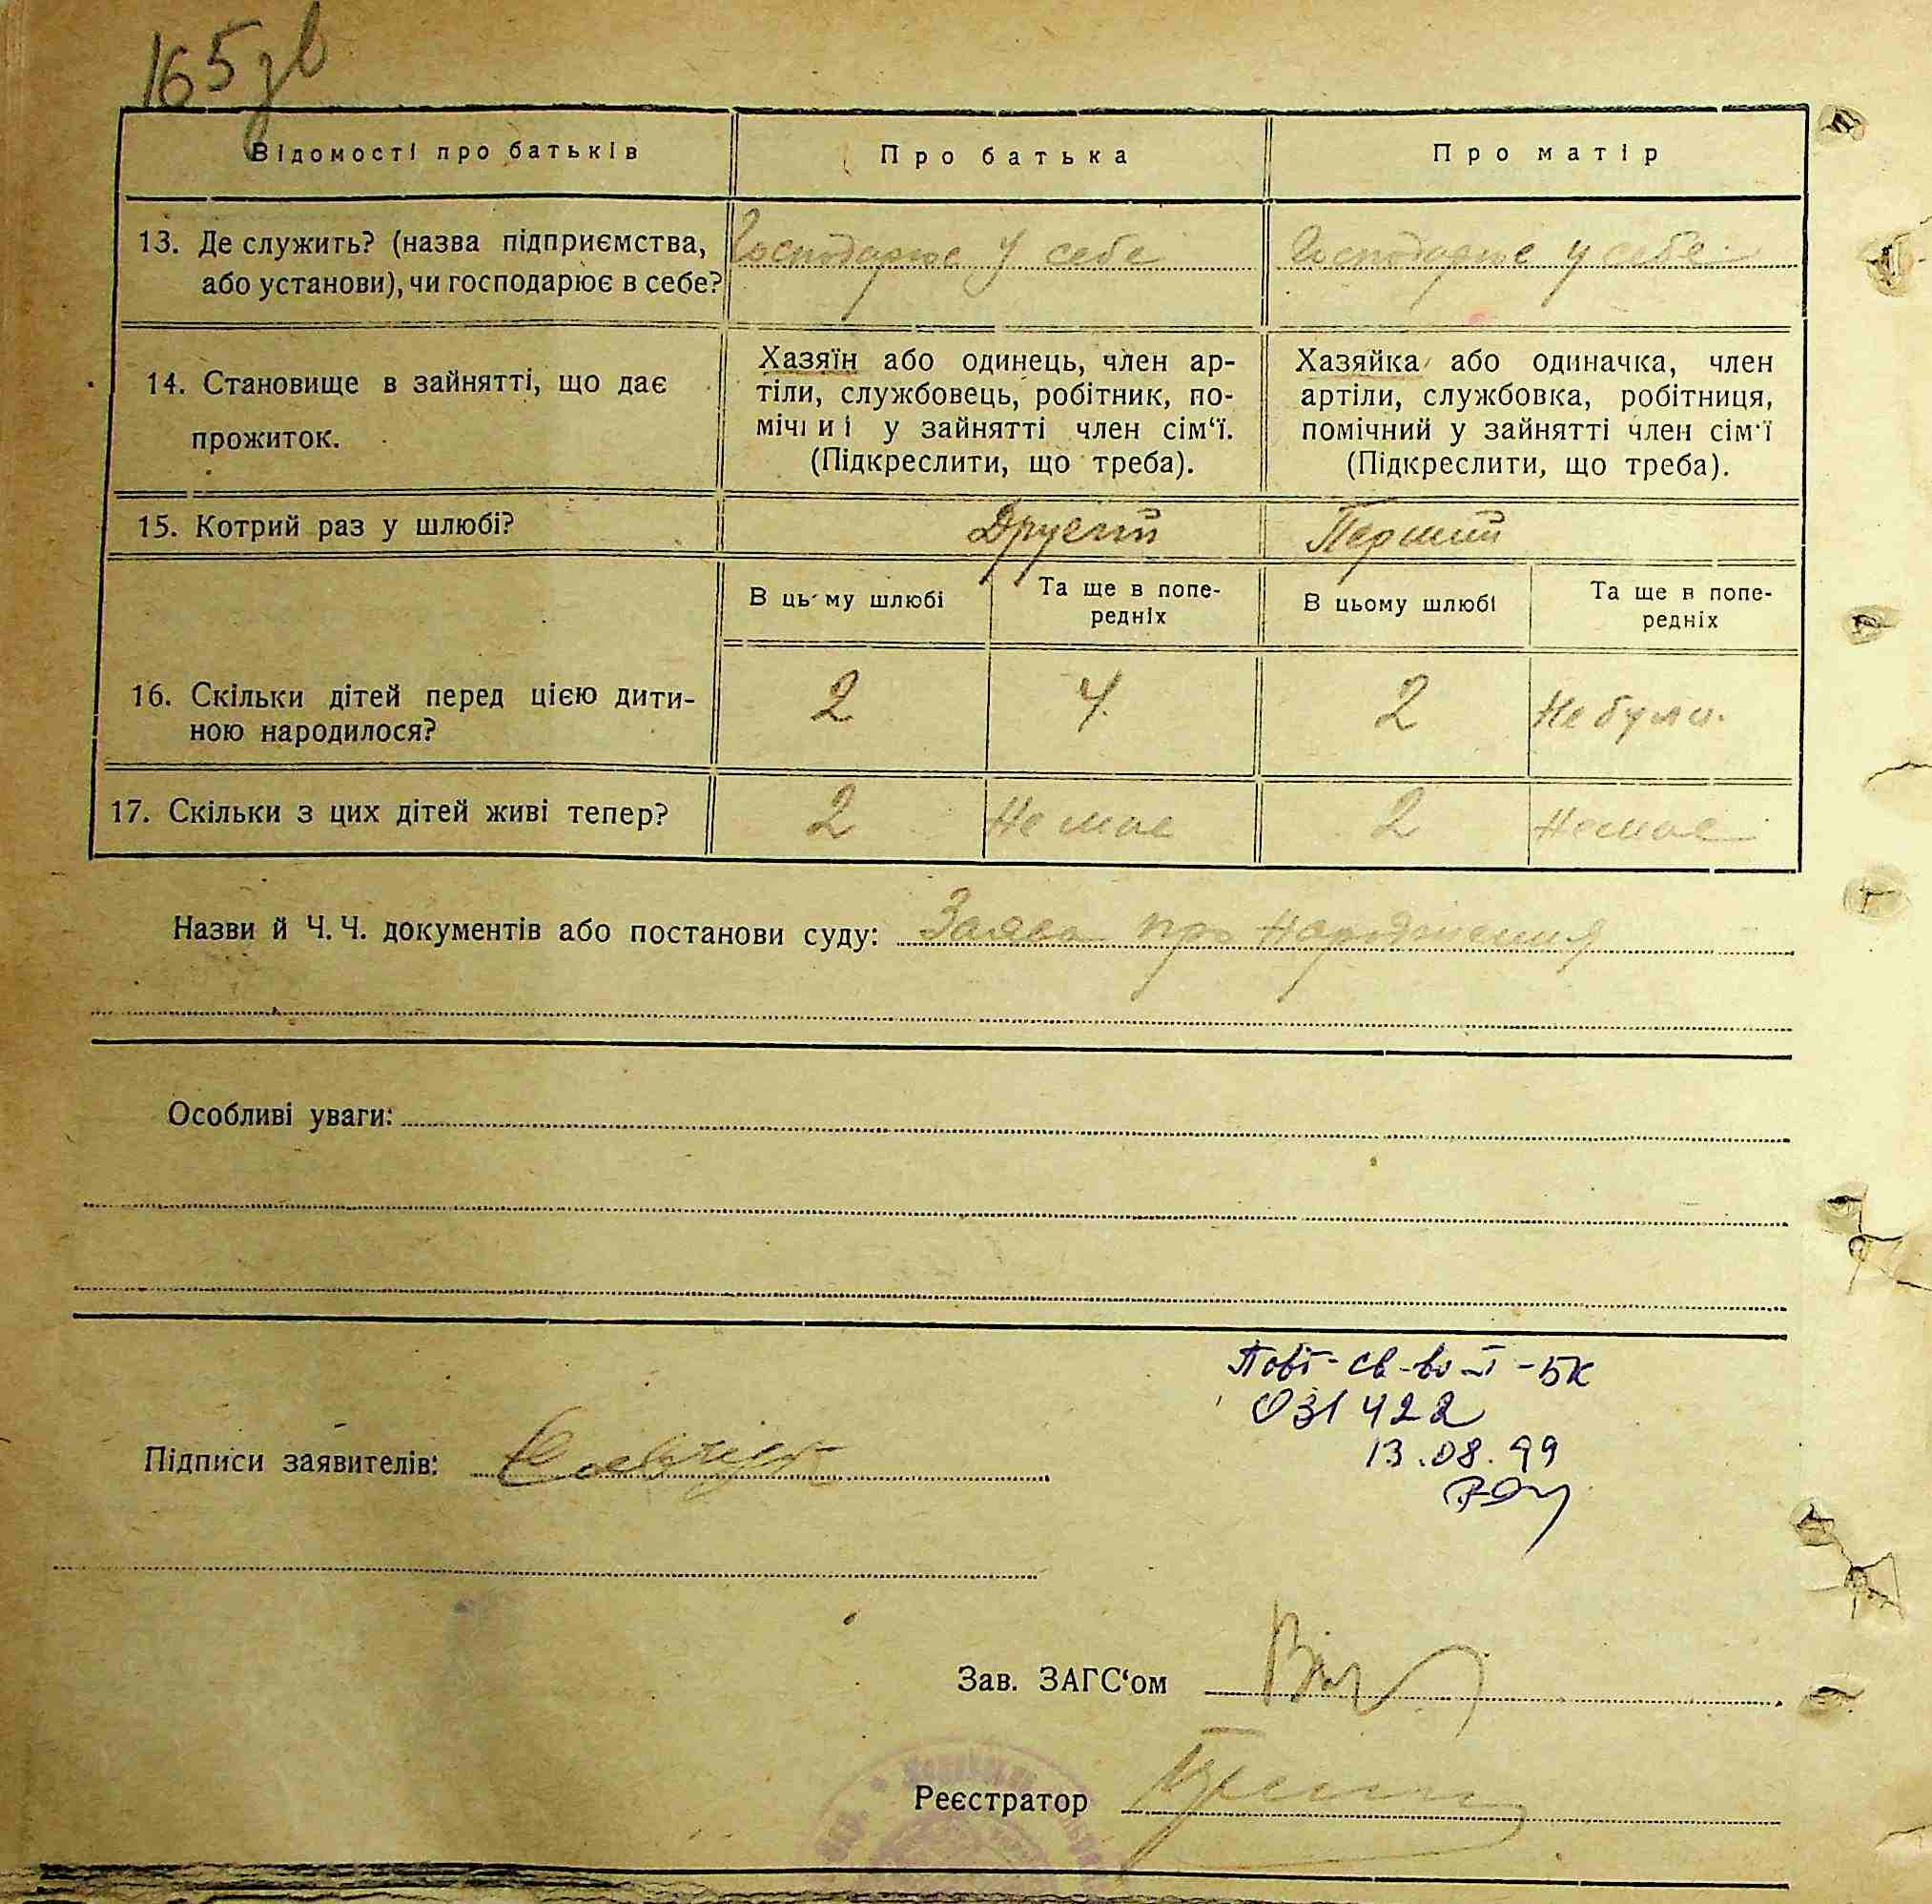 165 зв
Відомості про батьків
Про батька
Про матір
13. Де служить? (назва підприємства,
або установи), чи господарює в себе?
Господарює у себе
Господарює у себе
14. Становище в зайнятті, що дає
прожиток.
Хазяїн або одинець, член ар-
тіли, службовець, робітник, по-
мічний у зайнятті член сім‘ї.
(Підкреслити, що треба).
Хазяйка або одиначка, член
артіли, службовка, робітниця,
помічний у зайнятті член сім‘ї
(Підкреслити, що треба).
15. Котрий раз у шлюбі?
Другий
Перший
В цьому шлюбі
Та ще в попе-
редніх
В цьому шлюбі
Та ще в попе-
редніх
16. Скільки дітей перед цією дити-
ною народилося?
2
4
2
Не були.
17. Скільки з цих дітей живі тепер?
2
Не має
2
Немає
Назви й Ч. Ч. документів або постанови суду: Заява про народження
Особливі уваги:
Повт- св-во I - БК
031422
13.08.99
Підписи заявителів:
Зав. ЗАГС‘ом
Реєстратор